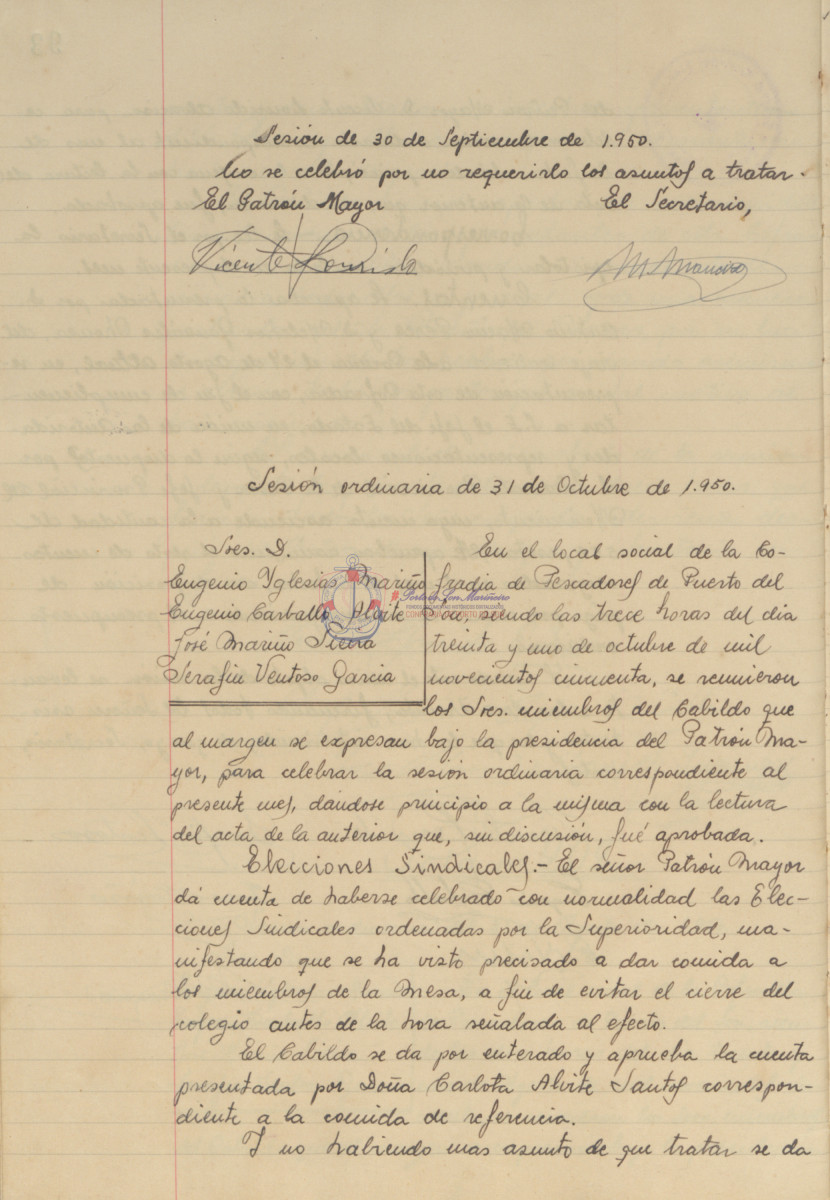 Sesión de 30 de Septiembre de 1.950.
No se celebró por no requerirlo los asuntos a tratar.
El Patrón Mayor
El Secretario,
Vicente
Sesión ordinaria de 31 de Octubre de 1.950.
Sres. D.
Eugenio Yglesias Mariño
Eugenio Carballo Alvite
José Mariño Sieira
Serafin Ventoso Garcia
En el local social de la Co-
fradia de Pescadores de Puerto del
Son, siendo las trece horas del dia
treinta y uno de octubre de mil
novecientos cincuenta, se reunieron
los Sres. miembros del Cabildo que
al margen se expresan bajo la presidencia del Patrón Ma-
yor, para celebrar la sesión ordinaria correspondiente al
presente mes, dándose principio a la misma con la lectura
del acta de la anterior que, sin discusión, fué aprobada.
Elecciones Sindicales.- El señor Patrón Mayor
dá cuenta de haberse celebrado con normalidad las Elec-
ciones Sindicales ordenadas por la Superioridad, ma-
nifestando que se ha visto precisado a dar comida a
los miembros de la Mesa, a fin de evitar el cierre del
colegio antes de la hora señalada al efecto.
El Cabildo se da por enterado y aprueba la cuenta
presentada por Doña Carlota Alvite Santos correspon-
diente a la comida de referencia.
Y no habiendo mas asunto de que tratar se da